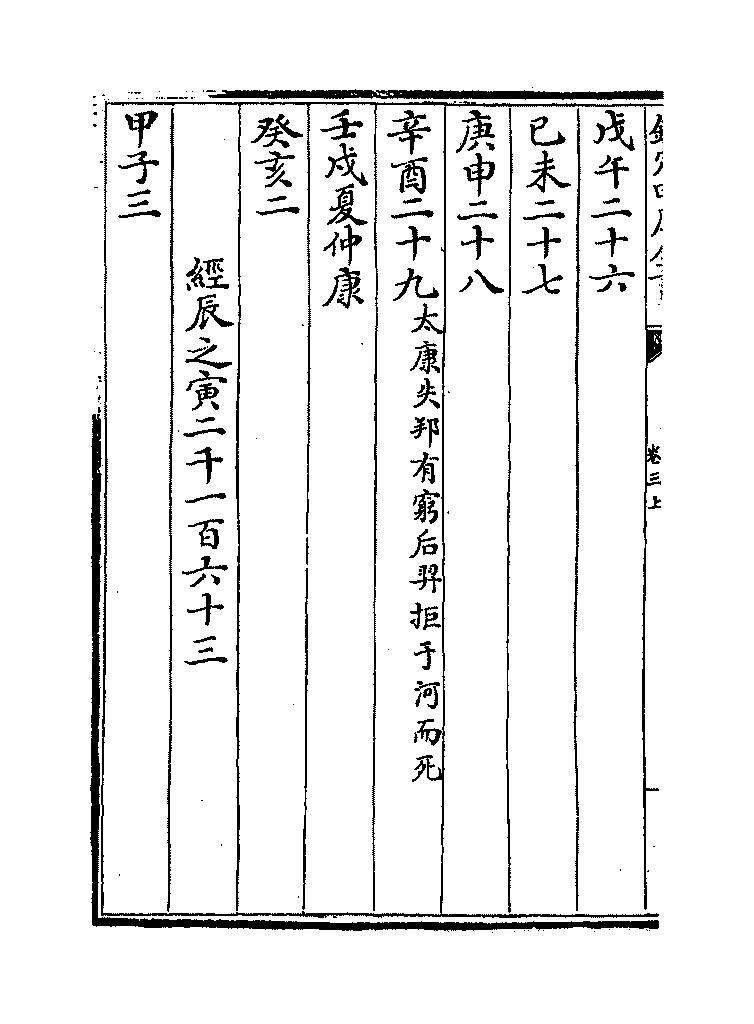 戊午二十六
已未二十七
庚申二十八
辛酉二十九太康失邦有窮后羿拒于河而死
壬戌夏仲康
癸亥二
經辰之寅二千一百六十三
甲子三
卷三上